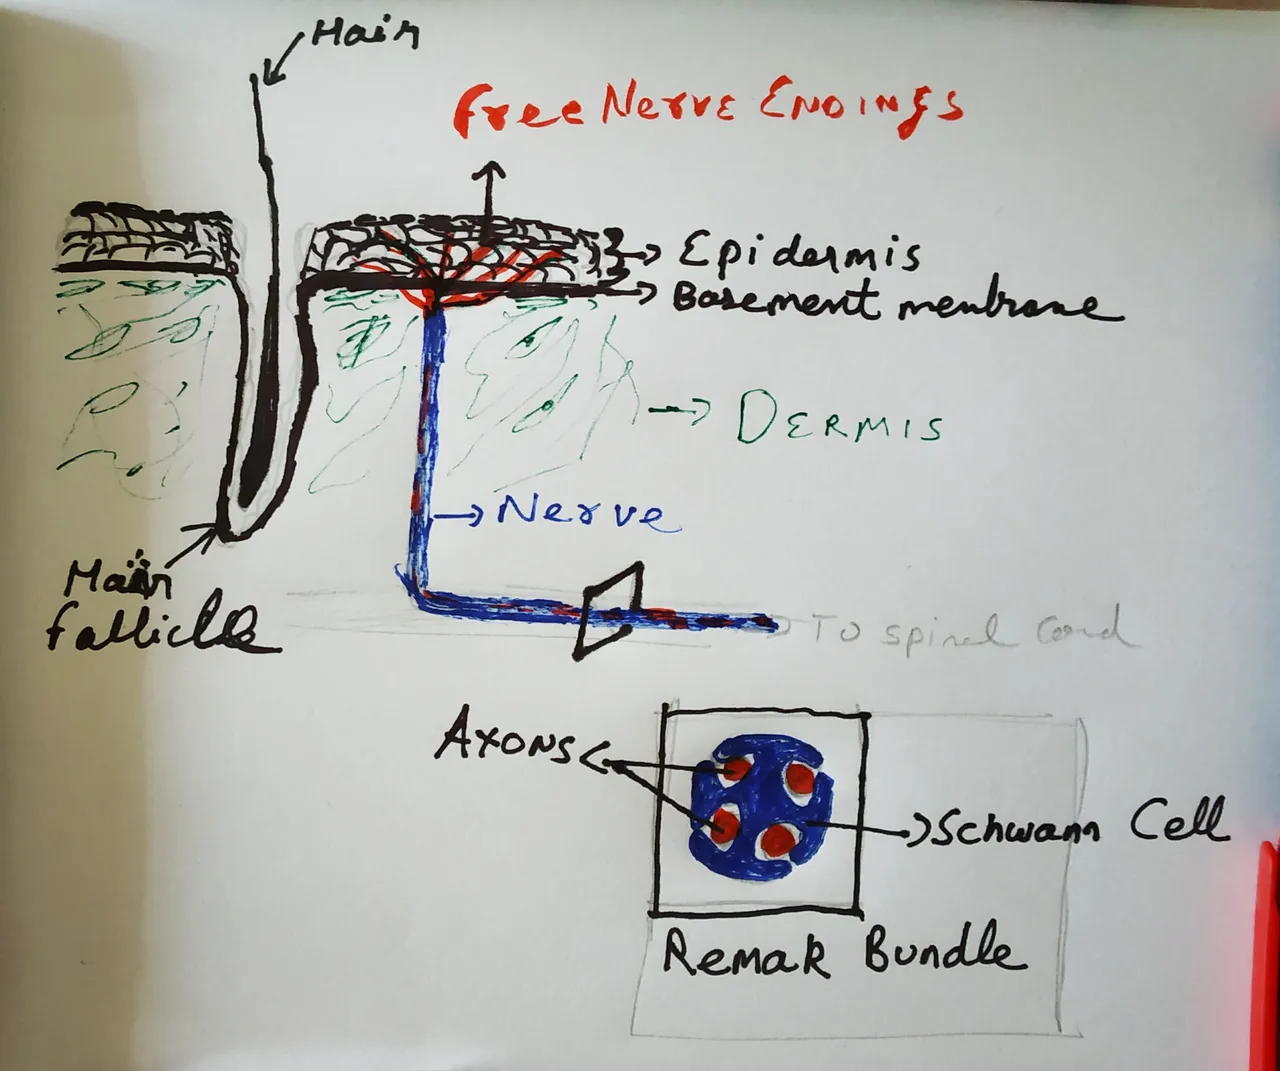 Hair
Free Nerve Endings
Epidermis
Basement membrane
Dermis
Nerve
Hair
fallicle
To spinal cord
Axons
Schwann Cell
Remak Bundle